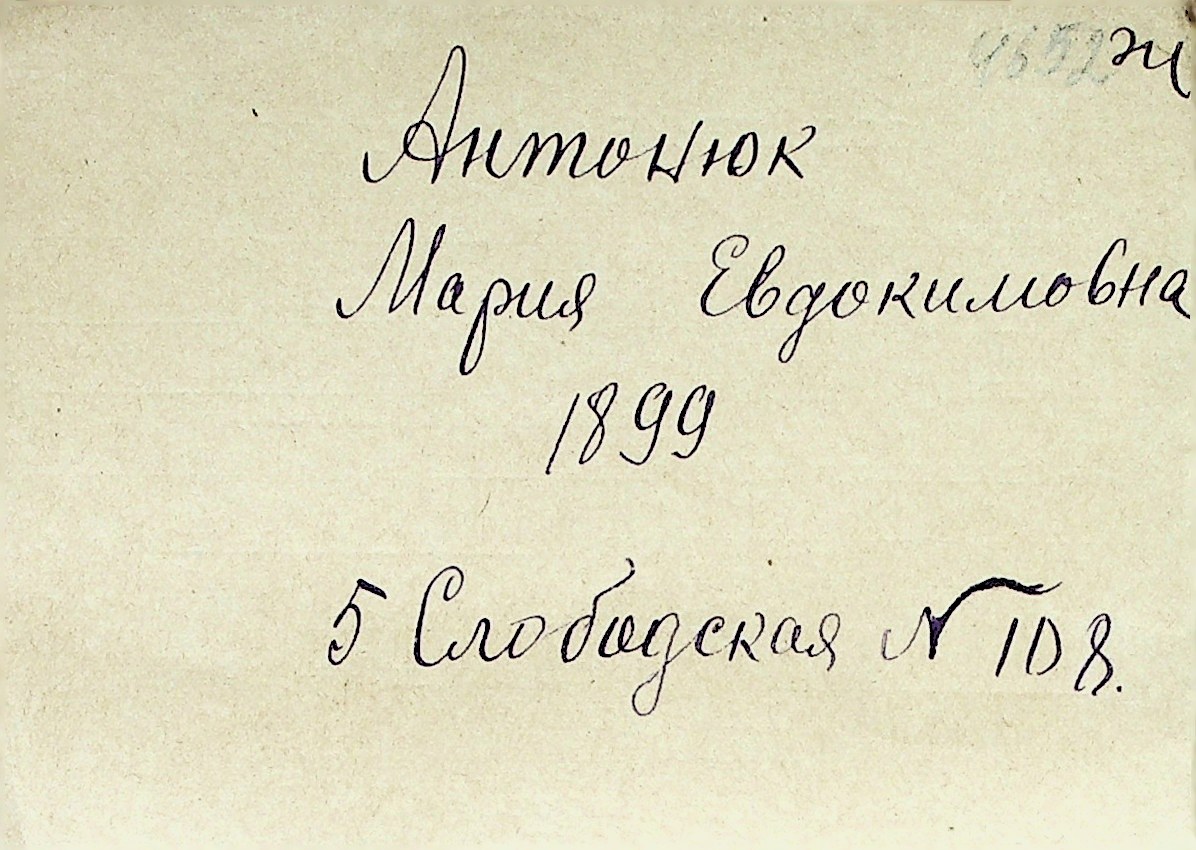 4652 ж
Антонюк
Мария Евдокимовна
1899
5 Слободская № 108.